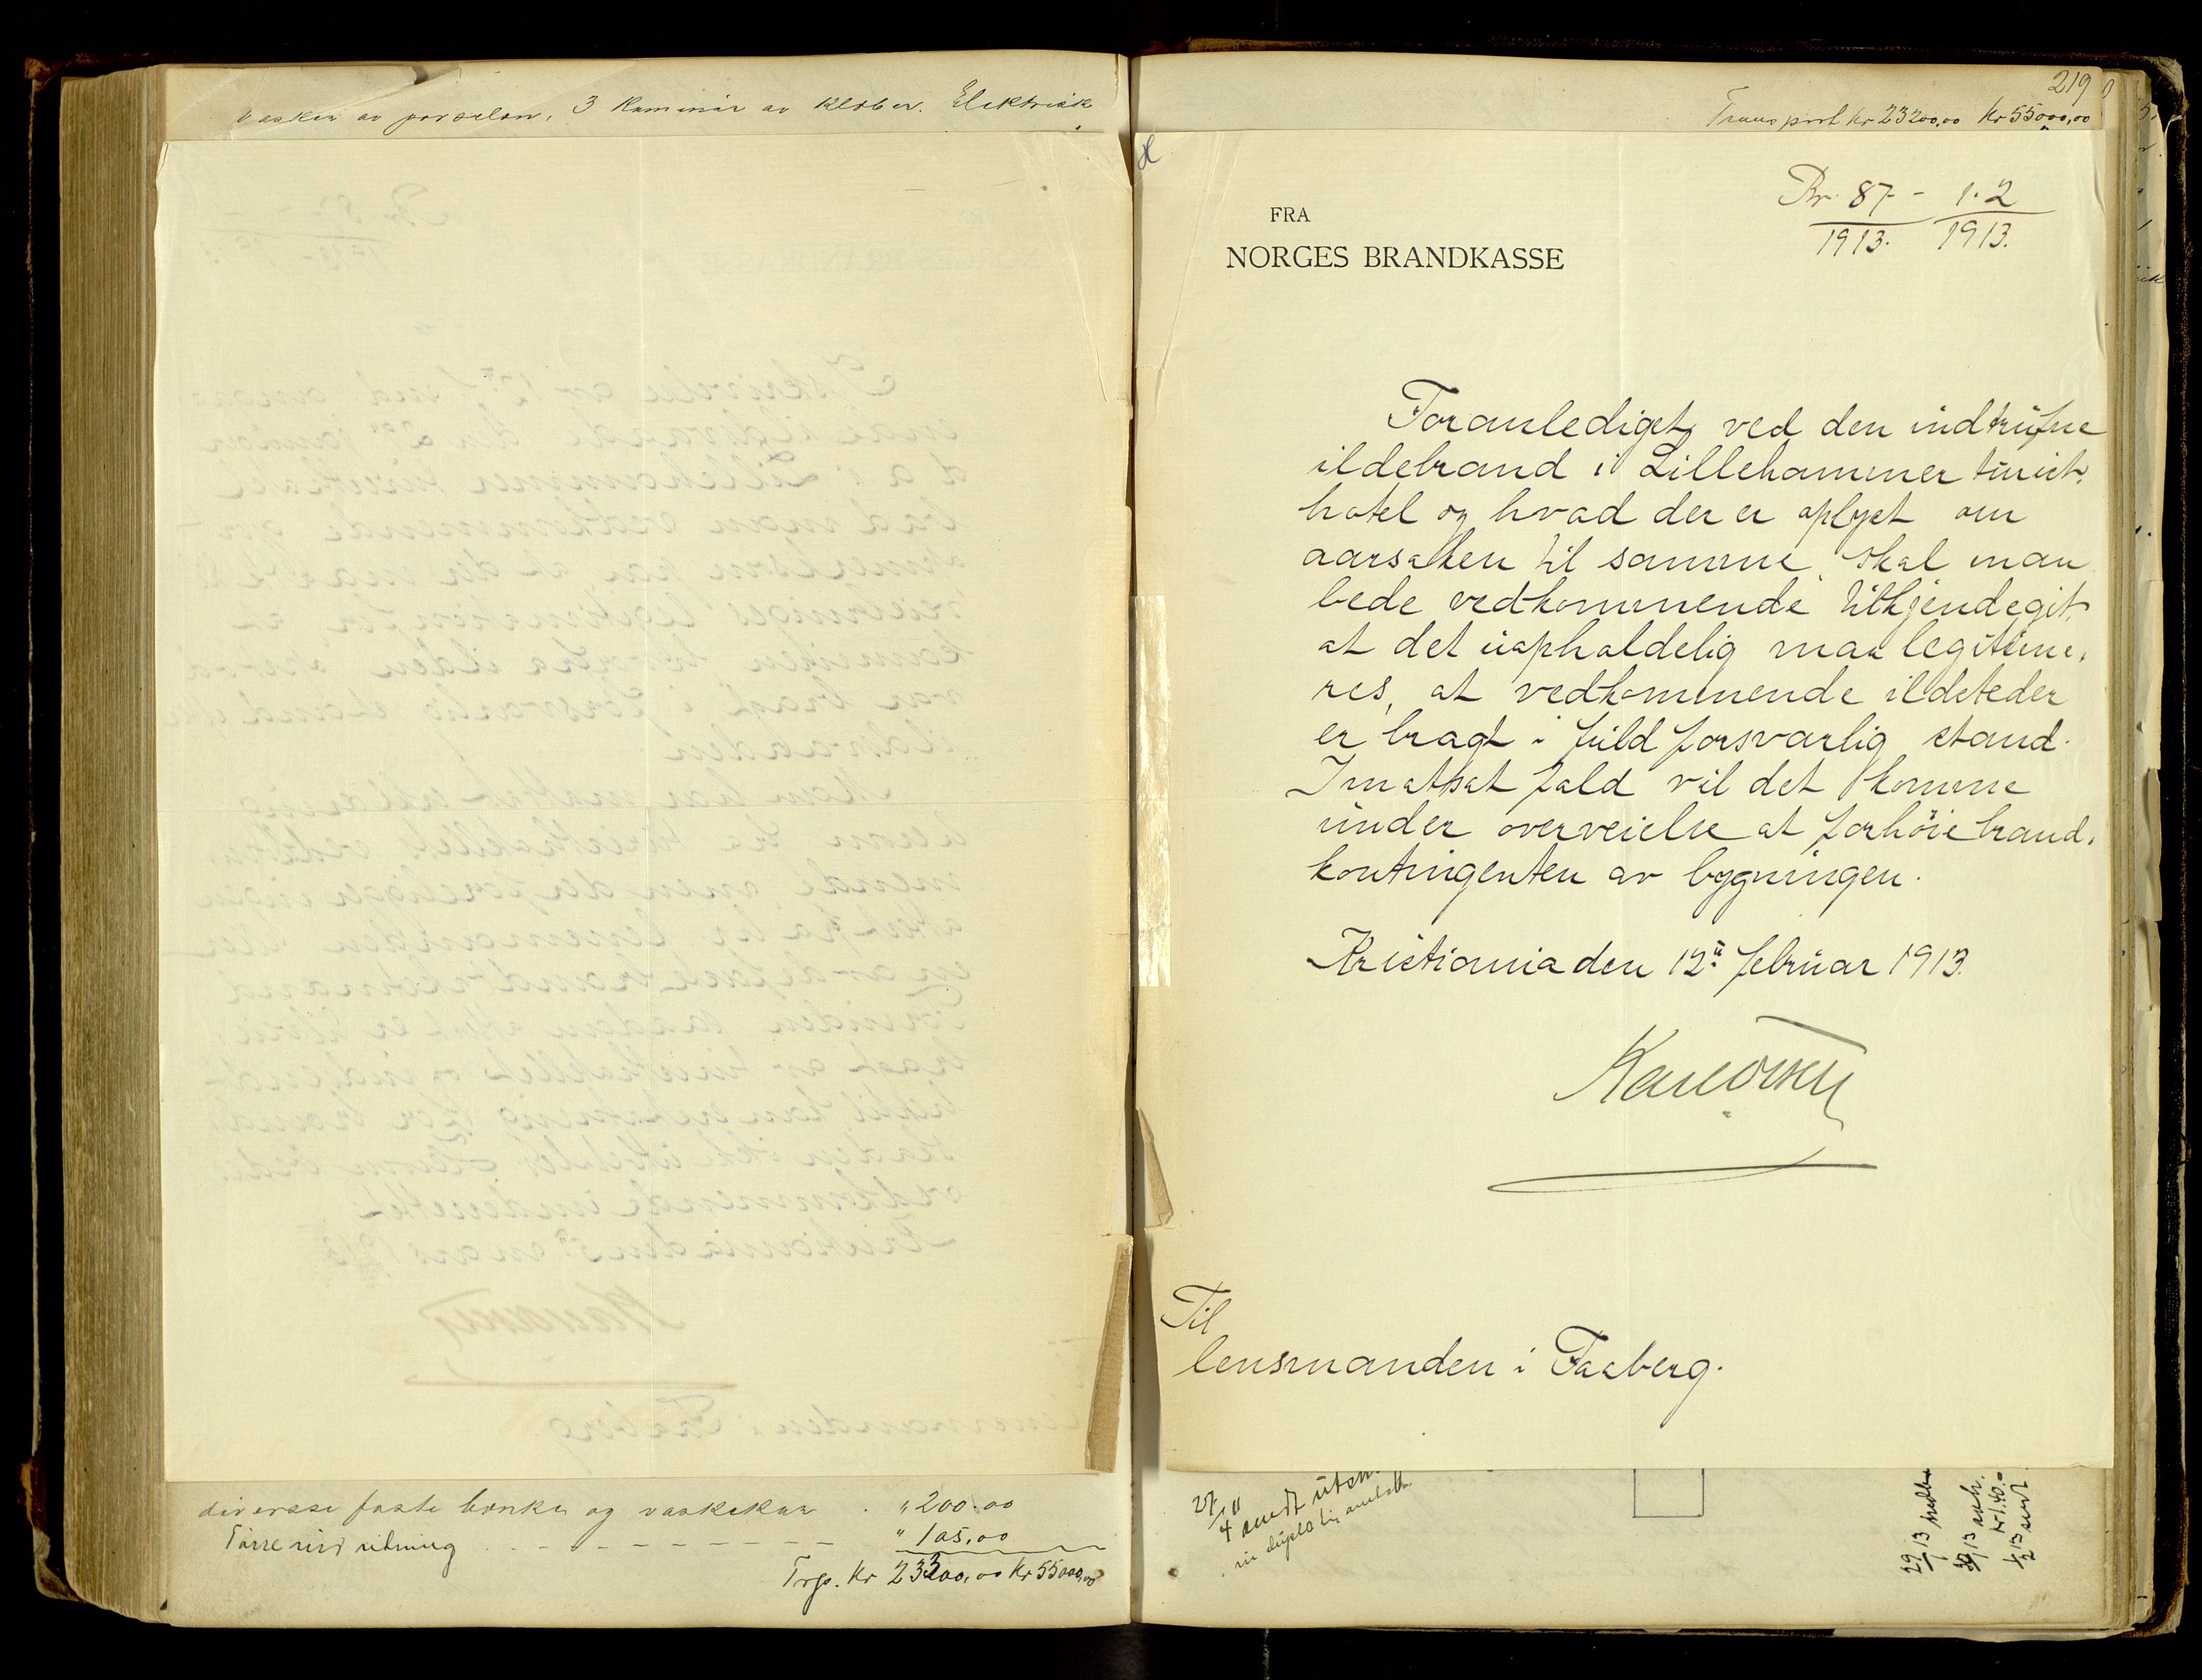 vasker av porselæn, 3 Kaminer av Kleber. Elektrisk
diverse faste bænker og vaskekar . " 200.00
Tørreindretning . - - - - - - - - " 105,00
Trsp. Kr 23200,00 Kr 55000,00
219
Transport Kr 23200,00 Kr 55000,00
Br. 87 - 1.2
1913. 1913.
FRA
NORGES BRANDKASSE
Foranlediget ved den indtrufne
ildebrand i Lillehammer turist-
hotel og hvad der er oplyst om
aarsaken til samme skal man
bede vedkommende tilkjendegit,
at det uopholdelig maa legitime-
res, at vedkommende ildsteder
er bragt i fuld forsvarlig stand.
I motsat fald vil det komme
under overveielse at forhøie brand-
kontingenten av bygningen.
Kristiania den 12te februar 1913.
Til
lensmanden i Faaberg.
27/4 11
sendt utskr.